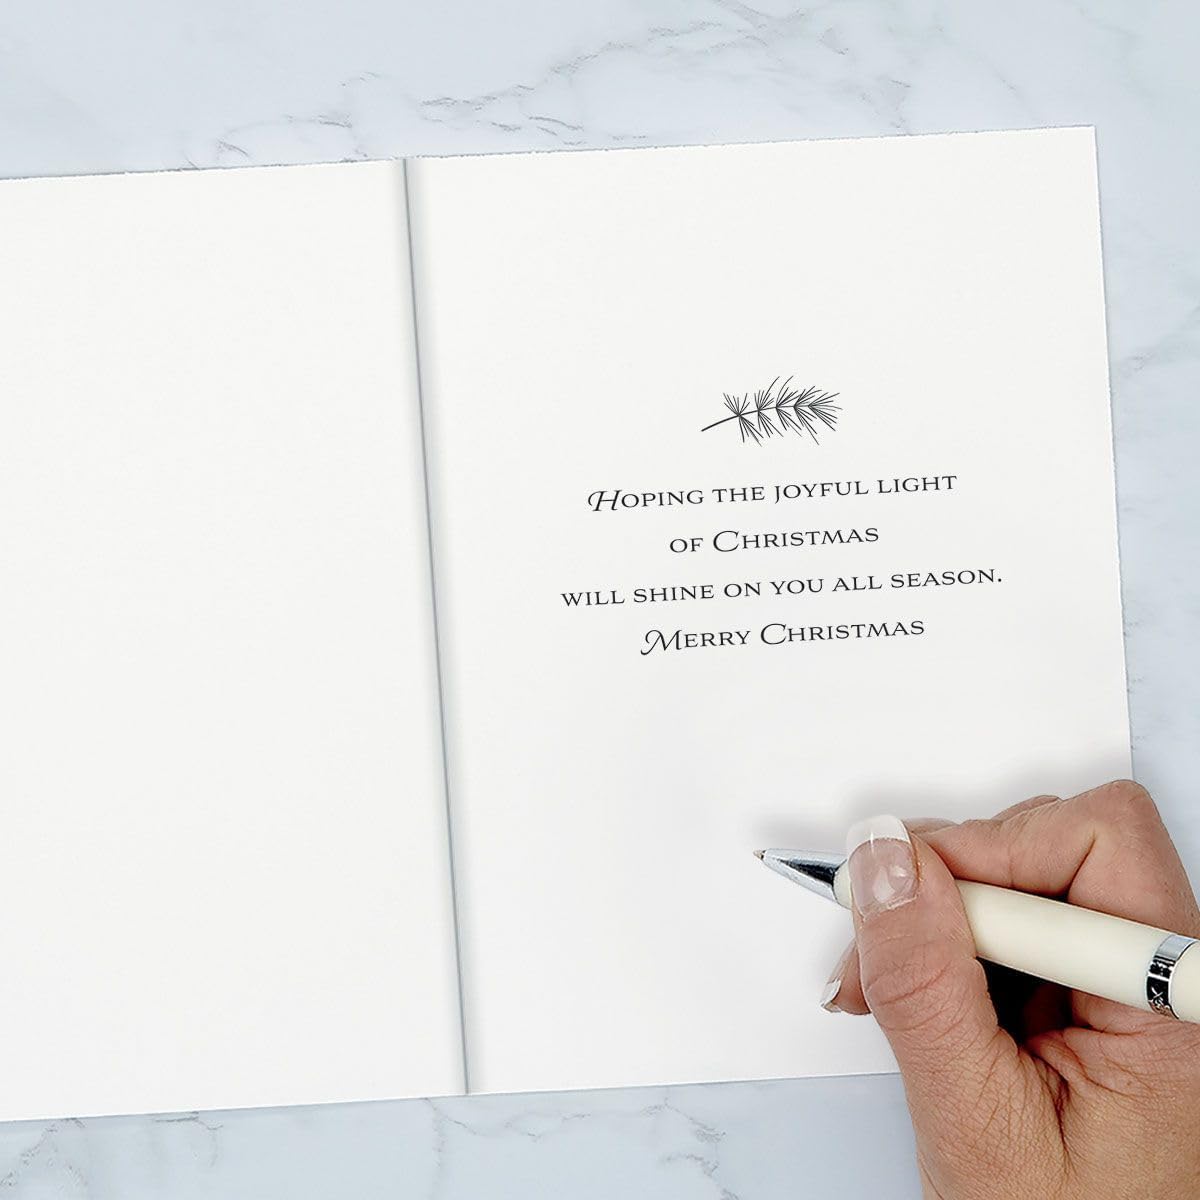 Hoping the joyful light
of Christmas
will shine on you all season.
Merry Christmas